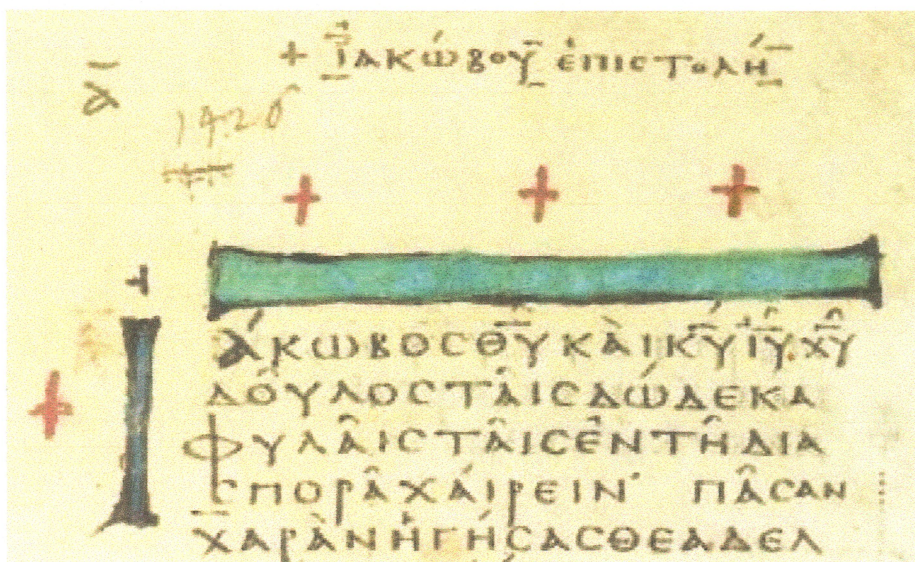 + ἰακώβου ἐπιστολή
α
1426
Ἰάκωβος θυ κὰι κυ ιυ χυ
δόυλος τᾶις δώδεκα
φυλᾶις τᾶις ἐν τῆ δια
σπορᾶ χάιρειν· πᾶσαν
χαρὰν ἡγήσασθε ἀδελ